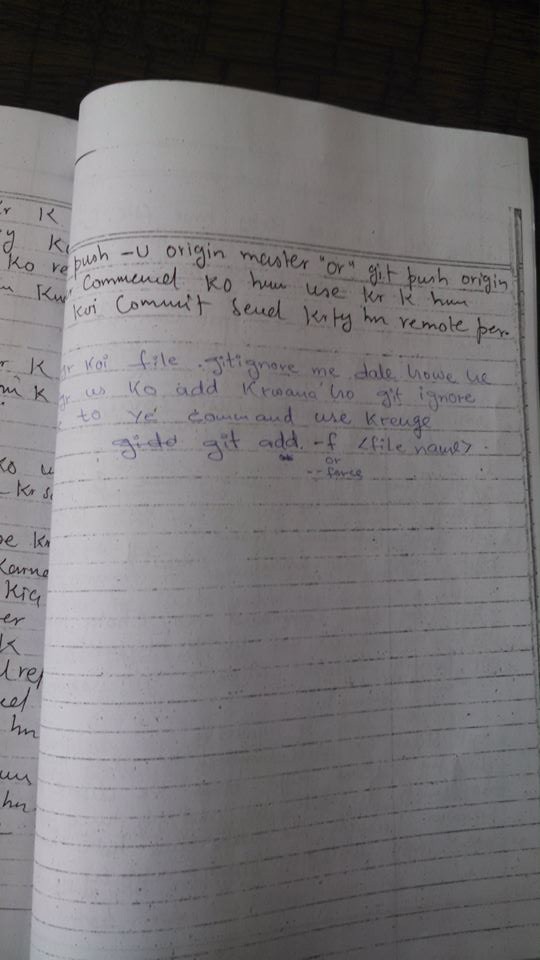 r K
y K
Ko re
r K
m K
Ko u
Kr s
be Kr
Karna
Kia
er
K
hn
hn
push -u origin master "or" git push origin
Commend ko hum use kr k hum
koi Commit Send krty hn remote per.
gr koi file .gitignore me dale howe he
gr us ko add krwana ho git ignore
to ye command use krenge
git add -f <file name>
or
--force